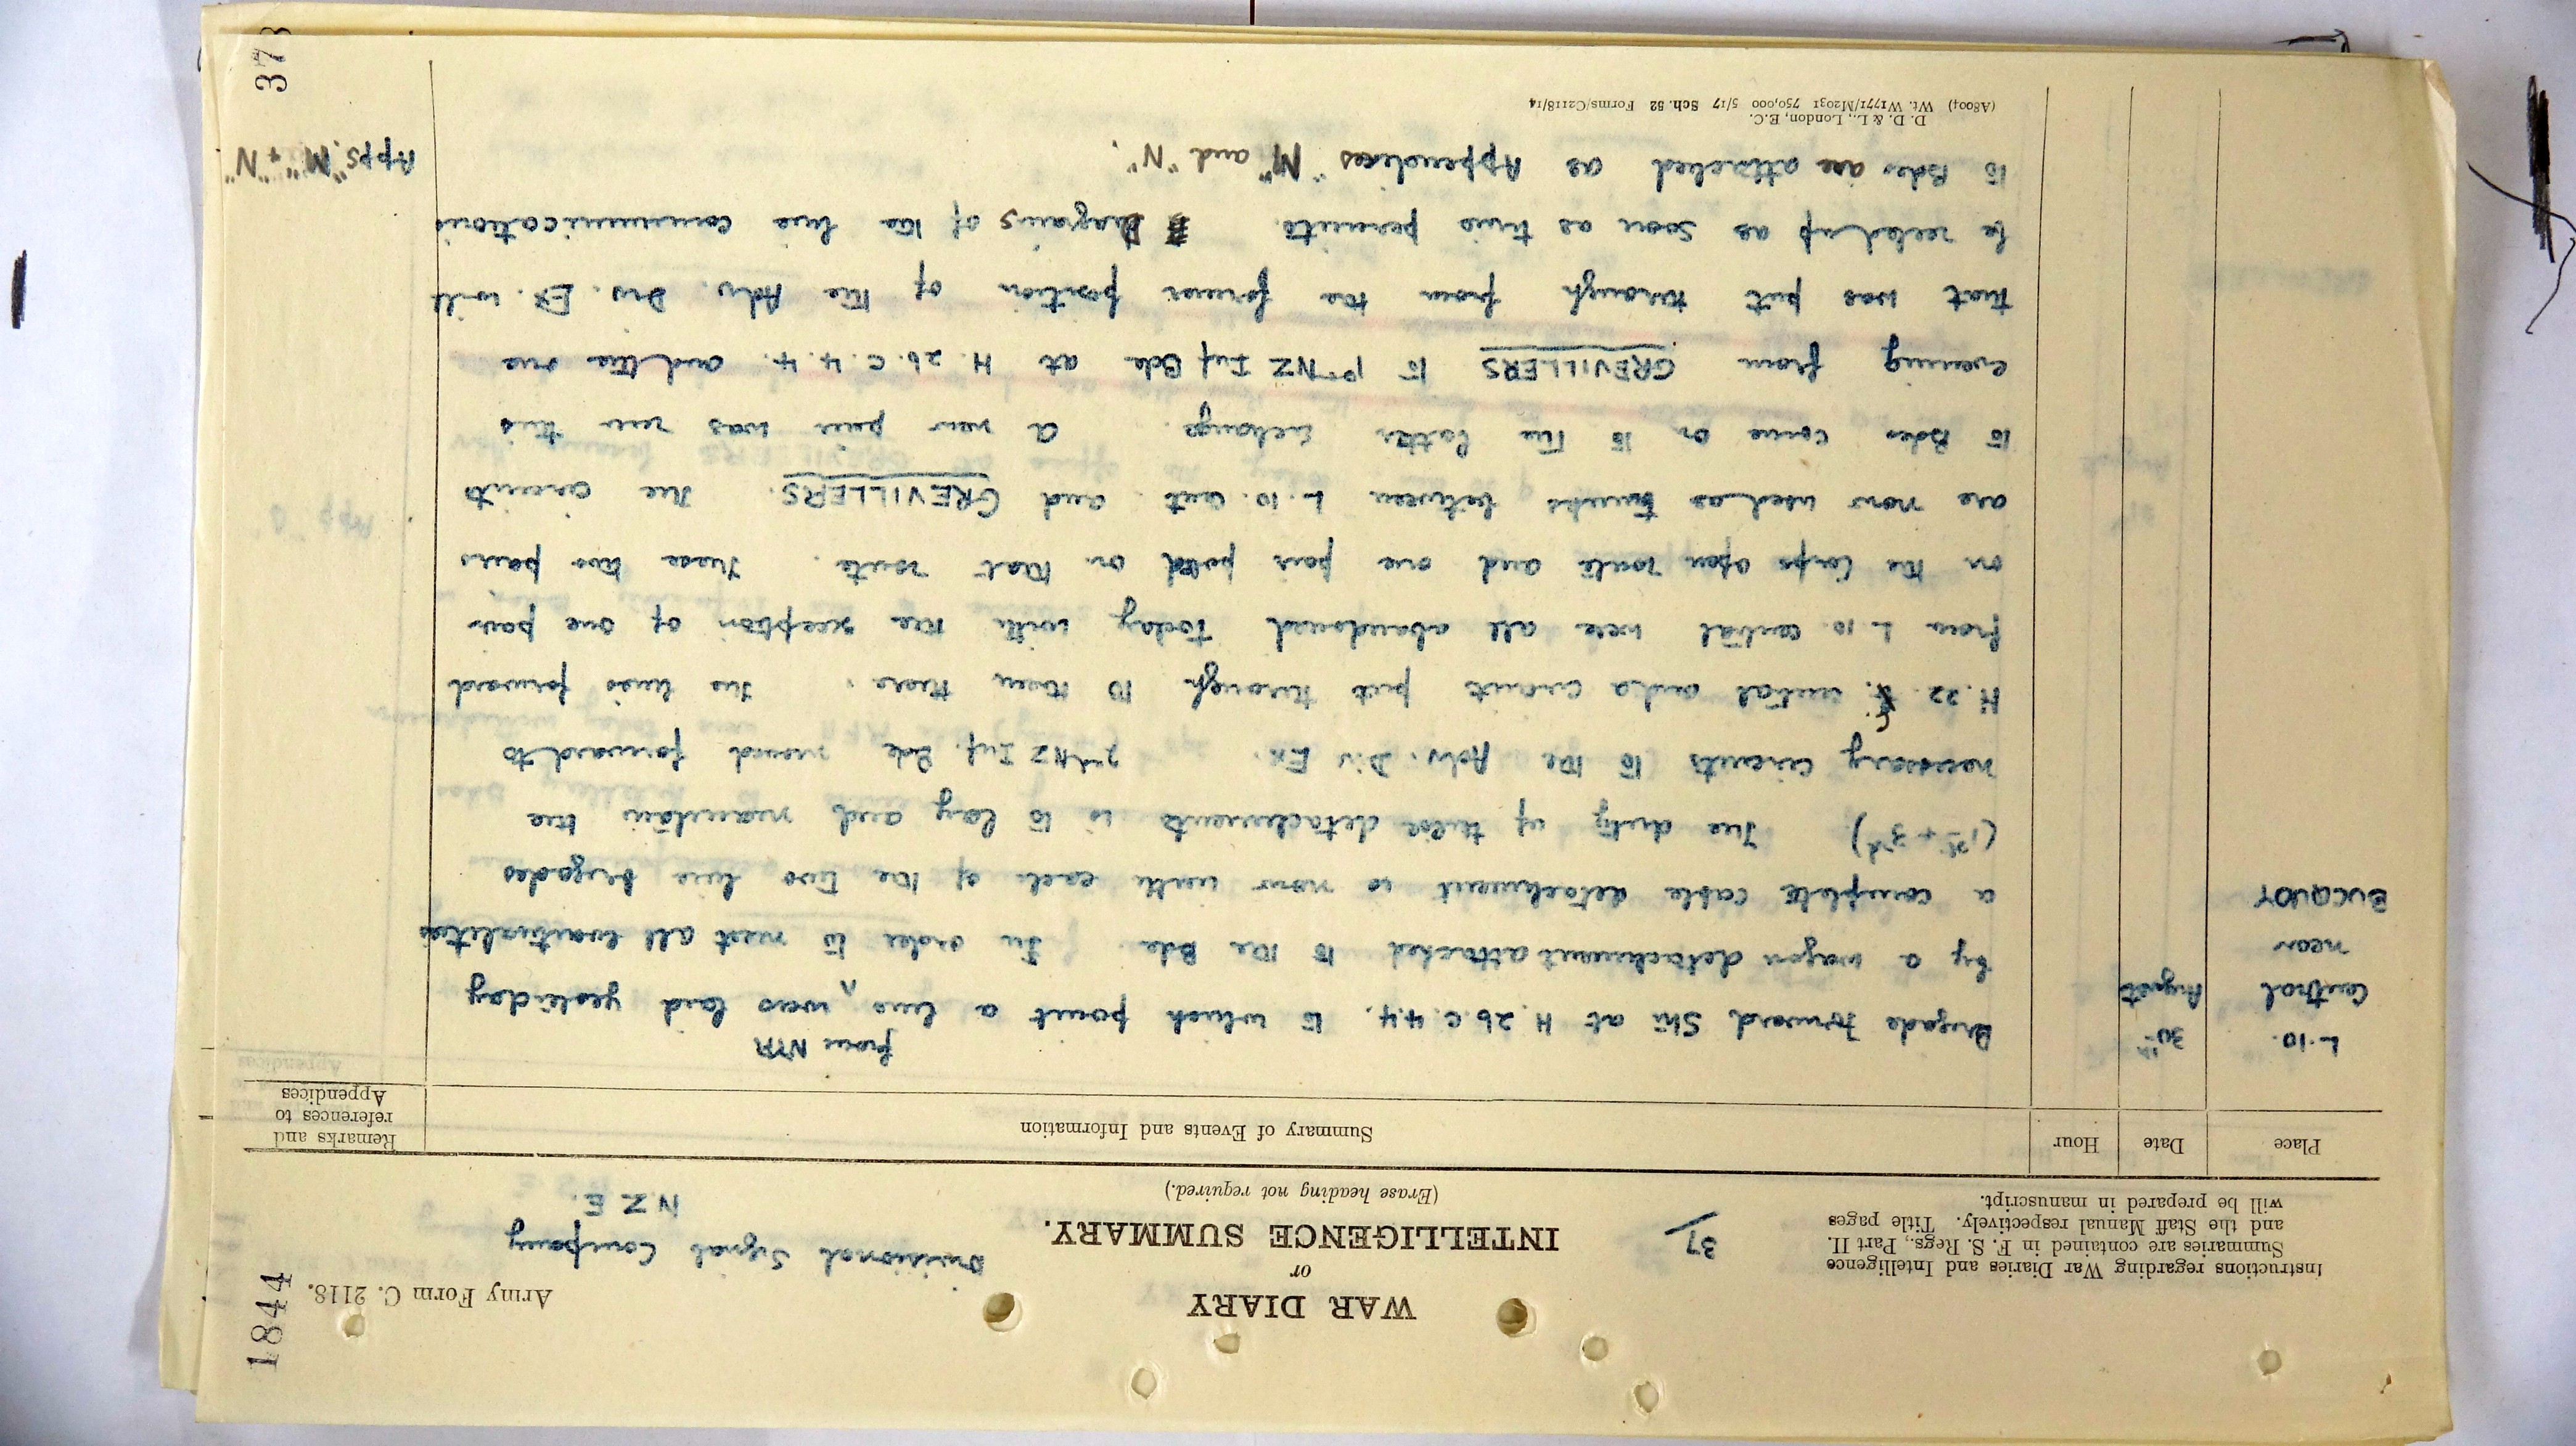 1844
Army Form C. 2118.
WAR DIARY
or
INTELLIGENCE SUMMARY.
(Erase heading not required.)
Instructions regarding War Diaries and Intelligence
Summaries are contained in F. S. Regs., Part II.
and the Staff Manual respectively. Title pages
will be prepared in manuscript.
37
Divisional Signal Company
N.Z.E.
Place Date Hour Summary of Events and Information Remarks and references to Appendices
L.10. Central near BUCQUOY
30th August
from NYA
Brigade Forward Stn at H.26.c.4.4. to which point a line was laid yesterday
by a wagon detachment attached to the Bde. In order to meet all eventualities
a complete cable detachment is now with each of the two line brigades
(1st + 3rd) The duty of these detachments is to lay and maintain the
necessary circuits to the Adv. Div Ex. 2nd NZ Inf. Bde moved forward to
H.22. central and a circuit put through to them there. The lines forward
from L.10. central were all abandoned today with the exception of one pair
on the Corps open route and one pair poled on that route. These two pairs
are now used as trunks between L.10. cent. and GREVILLERS. The circuits
to Bdes come on to the latter exchange. A new pair was run this
evening from GREVILLERS to 1st NZ Inf Bde at H.26.c.4.4. and the one
that was put through from the former position of the Adv. Div. Ex. will
be reeled up as soon as time permits. Diagrams of the line communications
to Bdes are attached as Appendices "M" and "N".
Apps. "M" + "N"
D. D. & L., London, E.C.
(A8004) Wt. W1771/M2031 750,000 5/17 Sch. 52 Forms/C2118/14
373